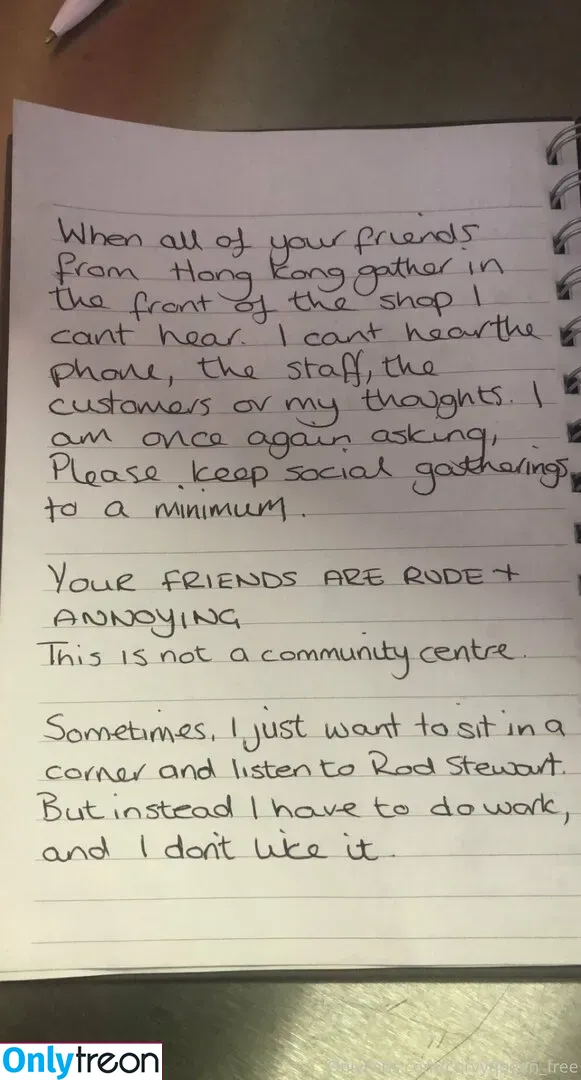 When all of your friends
from Hong Kong gather in
the front of the shop I
cant hear. I cant hear the
phone, the staff, the
customers or my thoughts. I
am once again asking,
Please keep social gatherings
to a minimum.
YOUR FRIENDS ARE RUDE +
ANNOYING
This is not a community centre.
Sometimes, I just want to sit in a
corner and listen to Rod Stewart.
But instead I have to do work,
and I don't like it.
Onlytreon